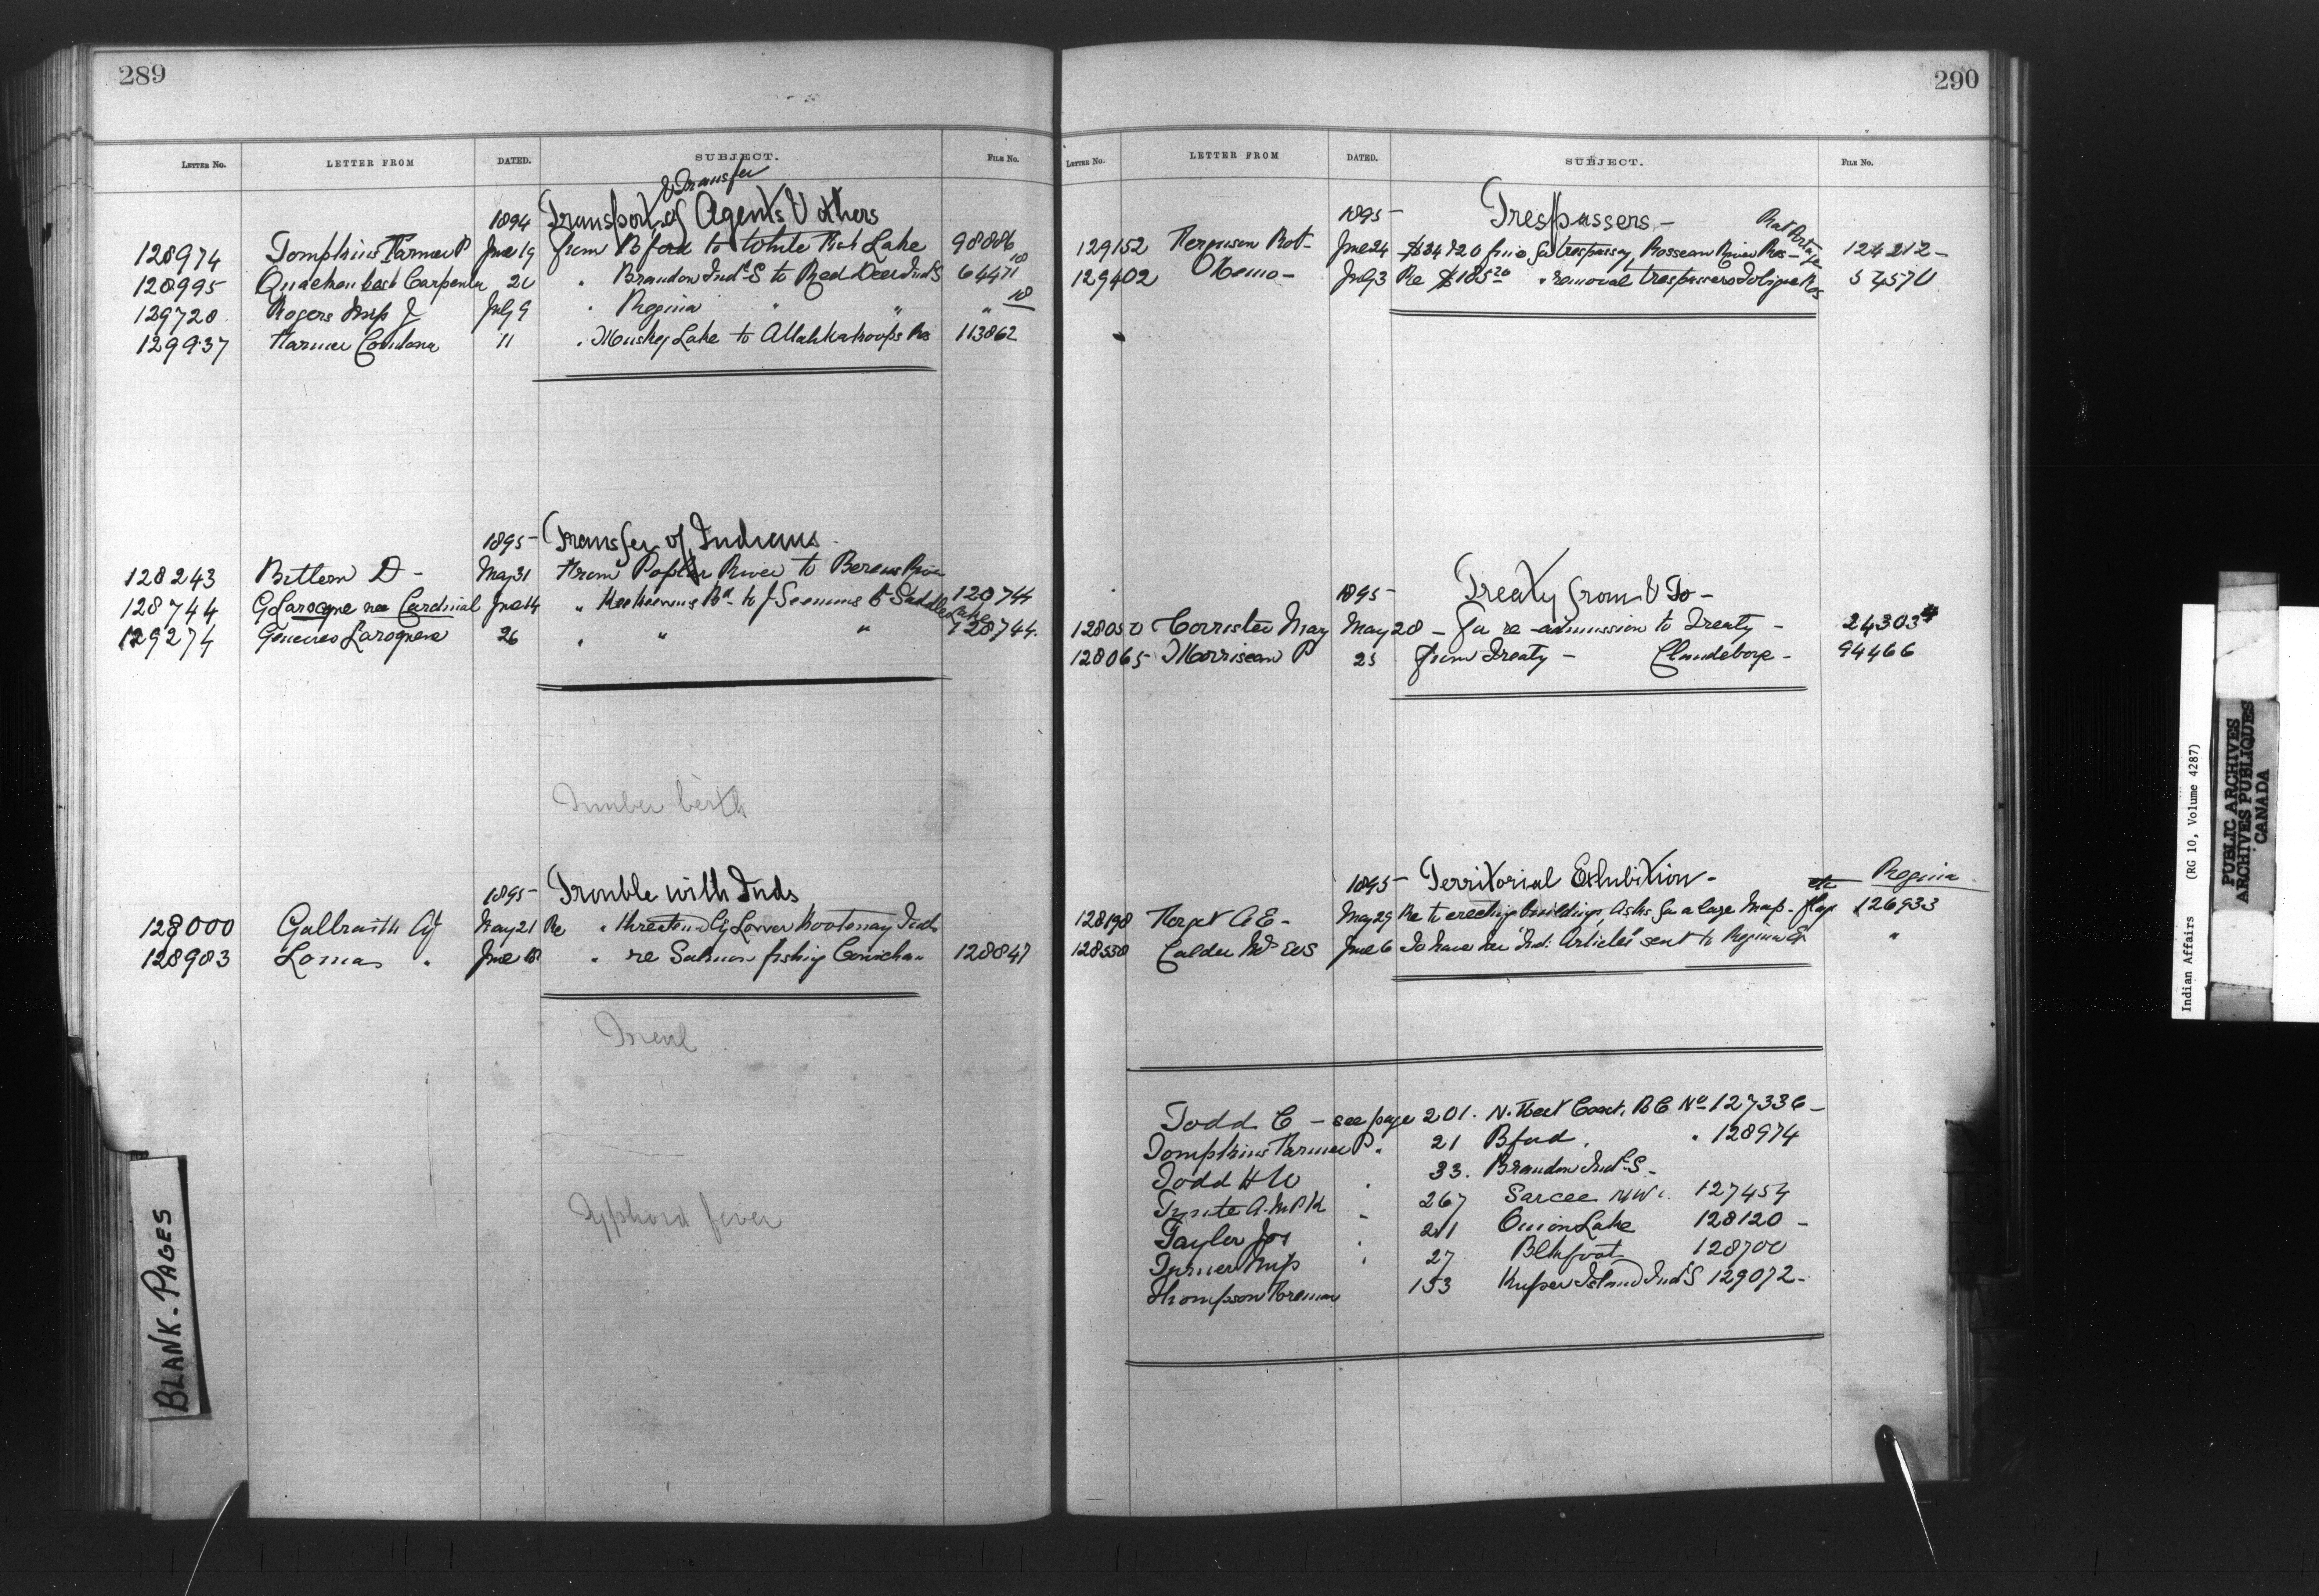 289
LETTER No. LETTER FROM DATED. SUBJECT. FILE No.
& Transfer
1894 Transport of Agents & others
128974 Tompkins Farmer P June 19 from Bford to White Fish Lake 98886
128995 Quackenbush Carpenter 20 " Brandon Indl S to Red Deer Ind S 64471 18
129720 Rogers Insp J July 9 " Regina " " " 18
129937 Farmer 11 " Muskeg Lake to Attahkakoops Res 113862
1895 Transfer of Indians
128243 Bittern D - May 31 From Poplar River to Berens River
128744 G Larocque nee Cardinal June 14 " Keeheewins Bd to J Seenums B Saddle Lake 128744
129274 Larocque 26 " " " 128744.
Timber berth
1895 Trouble with Inds
128000 Galbraith Agt May 21 Re " threatened by Lower Kootenay Inds
128983 Lomas " June 18 " re Salmon fishing Cowichan 128847
Typhoid fever
BLANK. PAGES
290
LETTER No. LETTER FROM DATED. SUBJECT. FILE No.
1895 Trespassers -
Rat Portage
129152 Ferguson Rot - June 24 fine for trespassing, Rosseau River Res - 124212 -
129402 Memo - July 3 Re removal trespassers Res 54570
1895 - Treaty from & To -
128050 Corrister May May 28 - for re-admission to Treaty - 24303 4
128065 Morriseau P 25 from Treaty - Clandeboye - 94466
1895 Territorial Exhibition - Regina
128198 Forget A E - May 29 Re to erecting buildings, Asks for a large Map - flag etc 126933
128558 Calder Mrs WS June 6 To have her "Ind: Articles" sent to Regina Ex "
Todd C - see page 201. N. West Coast. BC No 127336 -
Tompkins Farmer P. " 21 Bford. " 128974
Todd H W " 33. Brandon Indl S -
A. McP K " 267 Sarcee 127454
Taylor Jos " 211 Onion Lake 128120 -
Turner Insp " 27 Blkfoot 128700
Thompson Foreman 153 Kuper Island Ind S 129072 -
Indian Affairs (RG 10, Volume 4287)
PUBLIC ARCHIVES
ARCHIVES PUBLIQUES
CANADA